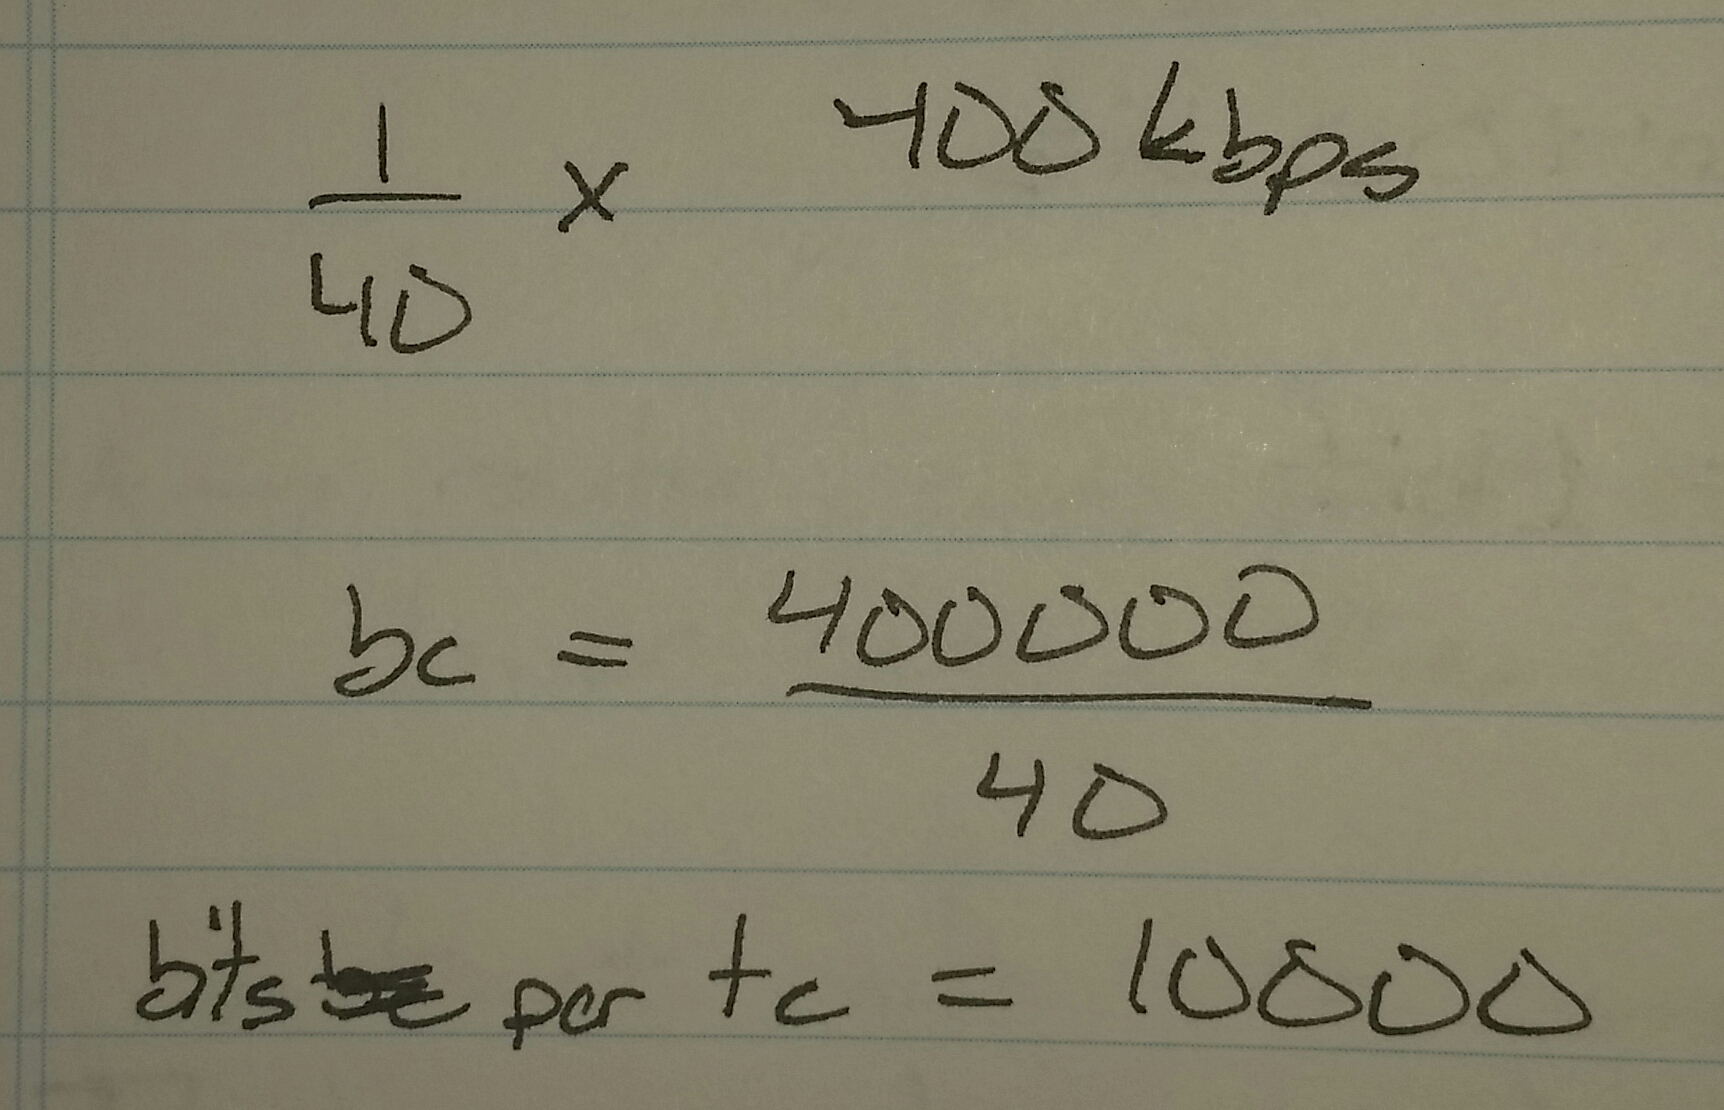 1/40 x 400 kbps
bc = 400000/40
bits per tc = 10000